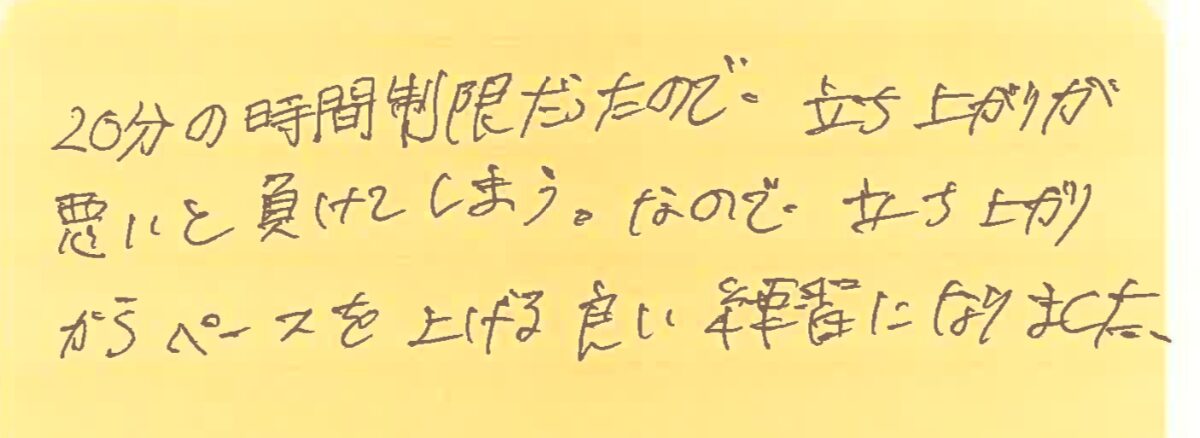 20分の時間制限だったので、立ち上がりが
悪いと負けてしまう。なので、立ち上がり
からペースを上げる良い練習になりました、